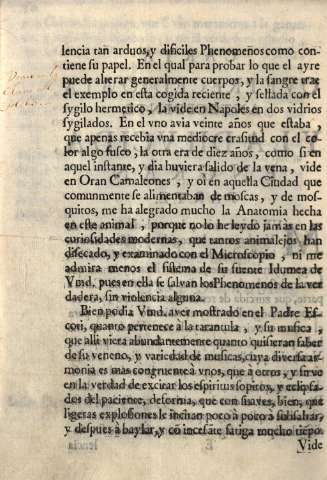 lencia tan arduos, y dificiles Phenomeños como con-
tiene su papel. En el qual para probar lo que el ayre
puede alterar generalmente cuerpos, y la sangre trae
el exemplo en esta cogida reciente, y sellada con el
sygilo hermetico, la vide en Napoles en dos vidrios
sygilados. En el vno avia veinte años que estaba,
que apenas recebia vna mediocre crasitud con el co-
lor algo fusco, la otra era de diez años, como si en
aquel instante, y dia huviera salido de la vena, vide
en Oran Camaleones, y oì en aquella Ciudad que
comunmente se alimentaban de moscas, y de mos-
quitos, me ha alegrado mucho la Anatomia hecha
en este animal, porque no lo he leydo jamàs en las
curiosidades modernas, que tantos animalejos han
disecado, y examinado con el Microscopio, ni me
admira menos el sistema de su fuente Idumea de
Vmd. pues en ella se salvan los Phenomenos de la ver
dadera, sin violencia alguna.
Bien podia Vmd. aver mostrado en el Padre Es-
coti, quanto pertenece à la tarantula, y su musica,
que alli viera abundantemente quanto quisieran saber
de su veneno, y variedad de musicas, cuya diversa ar-
monia es mas congruente à vnos, que à otros, y sirve
en la verdad de excitar los espiritus sopitos, y eclipsa-
dos del paciente, de forma, que con suaves, bien, que
ligeras explosiones le incitan poco à poco à
y despues à baylar, y cõ incesãte fatiga mucho tiẽpo.
Vide